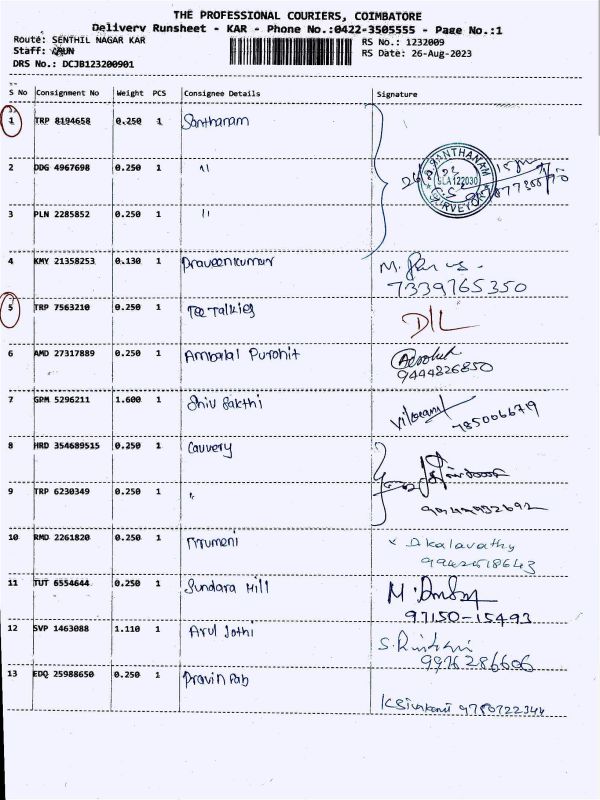 THE PROFESSIONAL COURIERS, COIMBATORE
Delivery Runsheet - KAR - Phone No.:0422-3505555 - Page No.:1
Route: SENTHIL NAGAR KAR
RS No.: 1232009
Staff: ARUN
RS Date: 26-Aug-2023
DRS No.: DCJB123200901
S No Consignment No Weight PCS Consignee Details Signature
1 TRP 8194658 0.250 1 Santhanam
SANTHANAM
SLA 122030
SURVEYOR
2 DDG 4967698 0.250 1 "
3 PLN 2285852 0.250 1 "
4 KMY 21358253 0.130 1 Praveenkumar
7339765350
5 TRP 7563210 0.250 1 Tee Talkies D/L
6 AMD 27317889 0.250 1 Ambalal Purohit
9444826850
7 GRM 5296211 1.600 1 Shiv Sakthi
7850066719
8 HRD 354689515 0.250 1 Cauvery
9 TRP 6230349 0.250 1 "
10 RMD 2261820 0.250 1 Tirumeni Dkalavathy
9942518643
11 TUT 6554644 0.250 1 Sundara Hill
97150-15493
12 SVP 1463088 1.110 1 Arul Jothi
9976286606
13 EDQ 25988650 0.250 1 Pravin Pab
9780722344